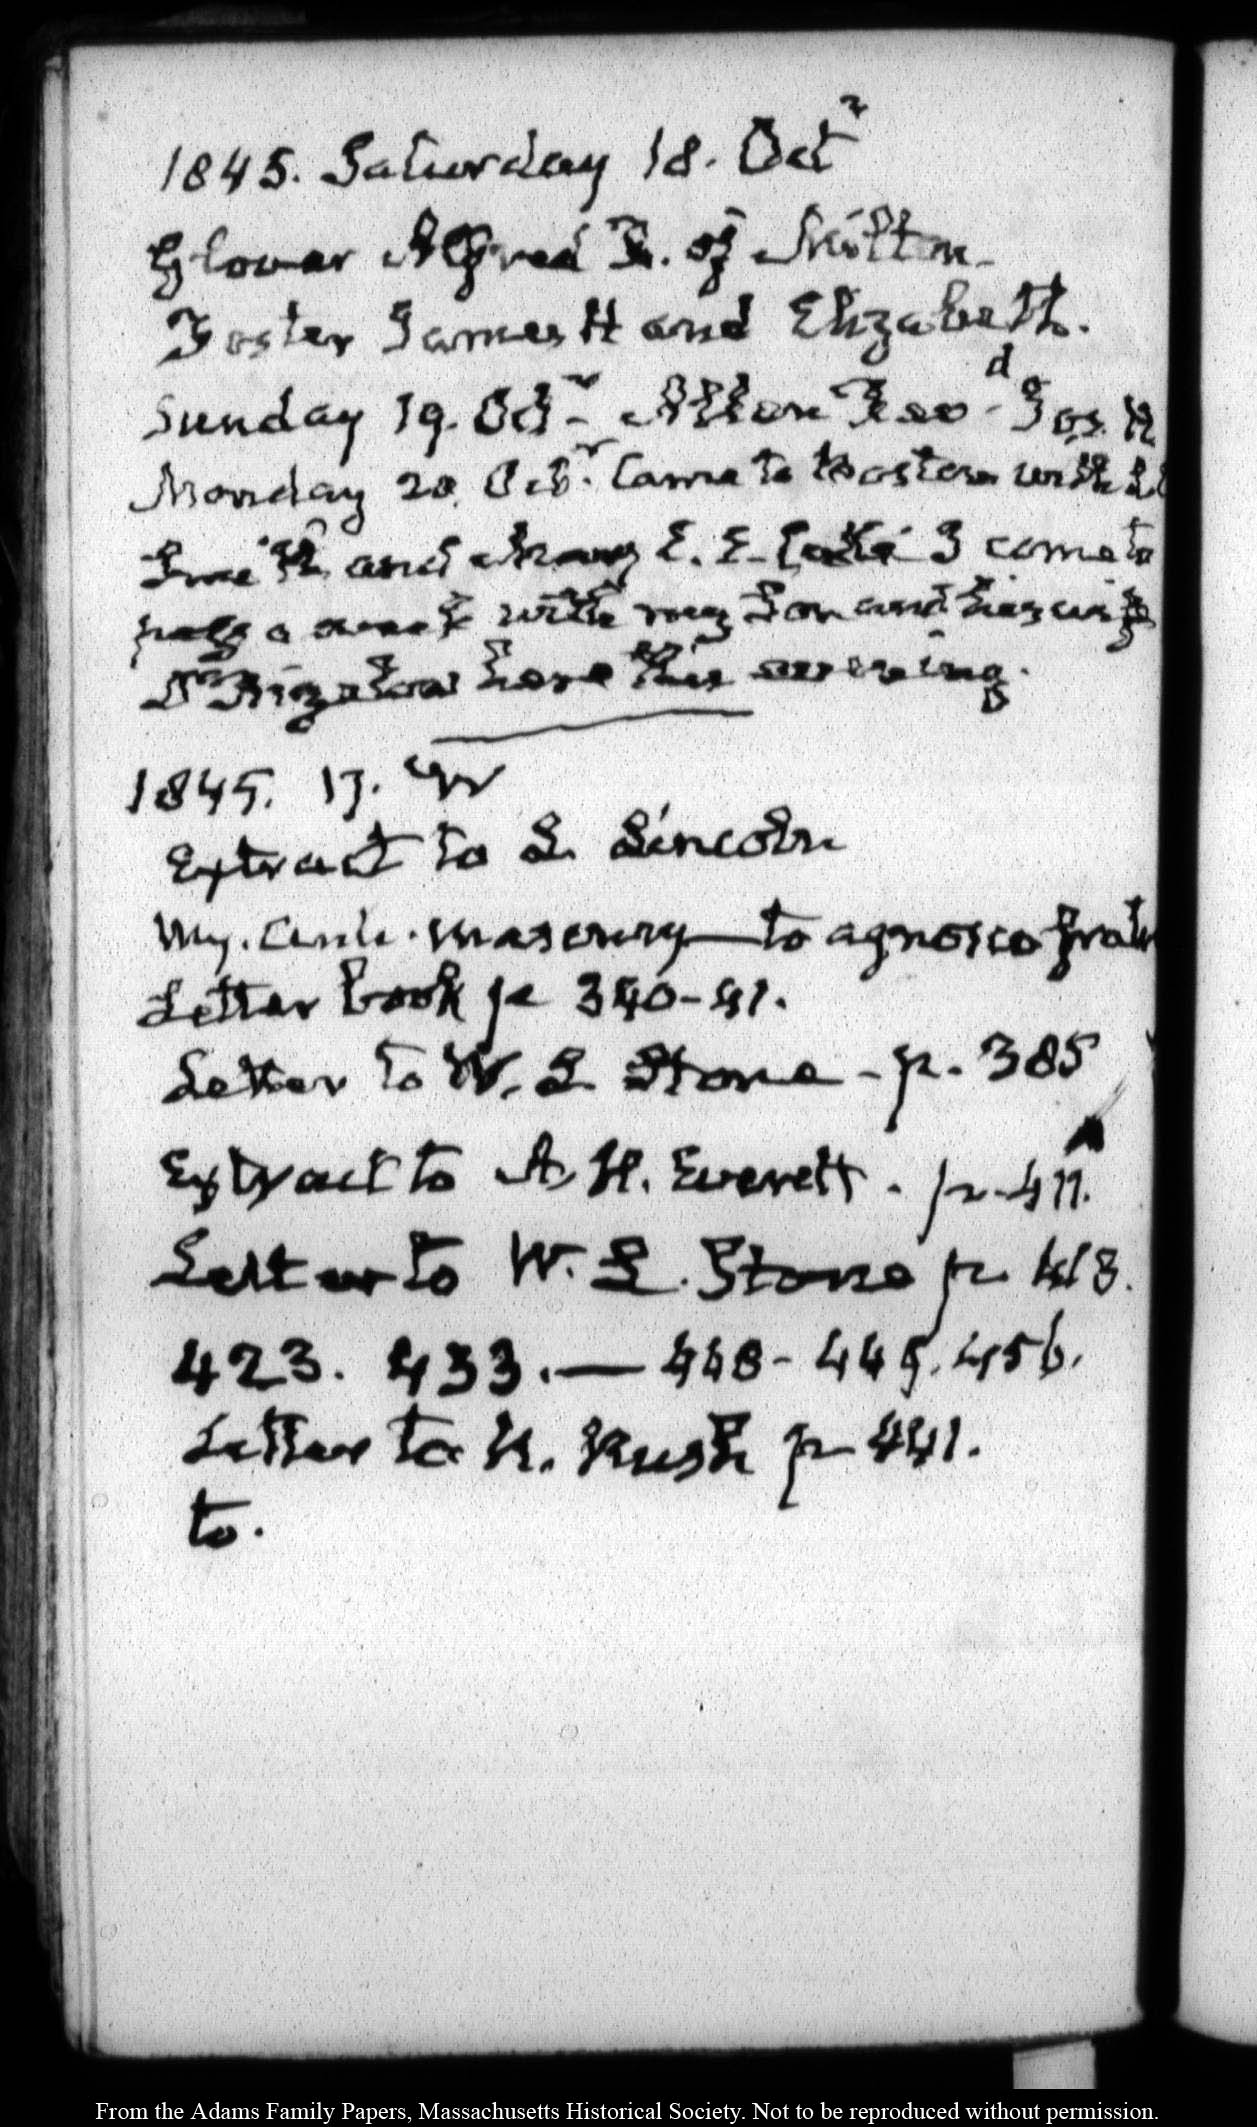 1845. Saturday 18. Octr
Glover Alfred K. of Milton
Foster James H and Elizabeth.
Sunday 19. Octr Allen Jos. H
Monday 20. Octr. Came to Boston with
Smith and Mary E. E. I come to
pass a week with my Son and his wife
Dr Bigelow here this evening.
1845. 17.
Extract to L. Lincoln
My. Anti. masonry — to agnosco
Letter book p 340-41.
Letter to W. L Stone - p. 385
Extract to A. H. Everett. p. 411.
Letter to W. L. Stone p. 418.
423. 433. — 448- 449. 456.
Letter to R. Rush p 441.
to.
From the Adams Family Papers, Massachusetts Historical Society. Not to be reproduced without permission.